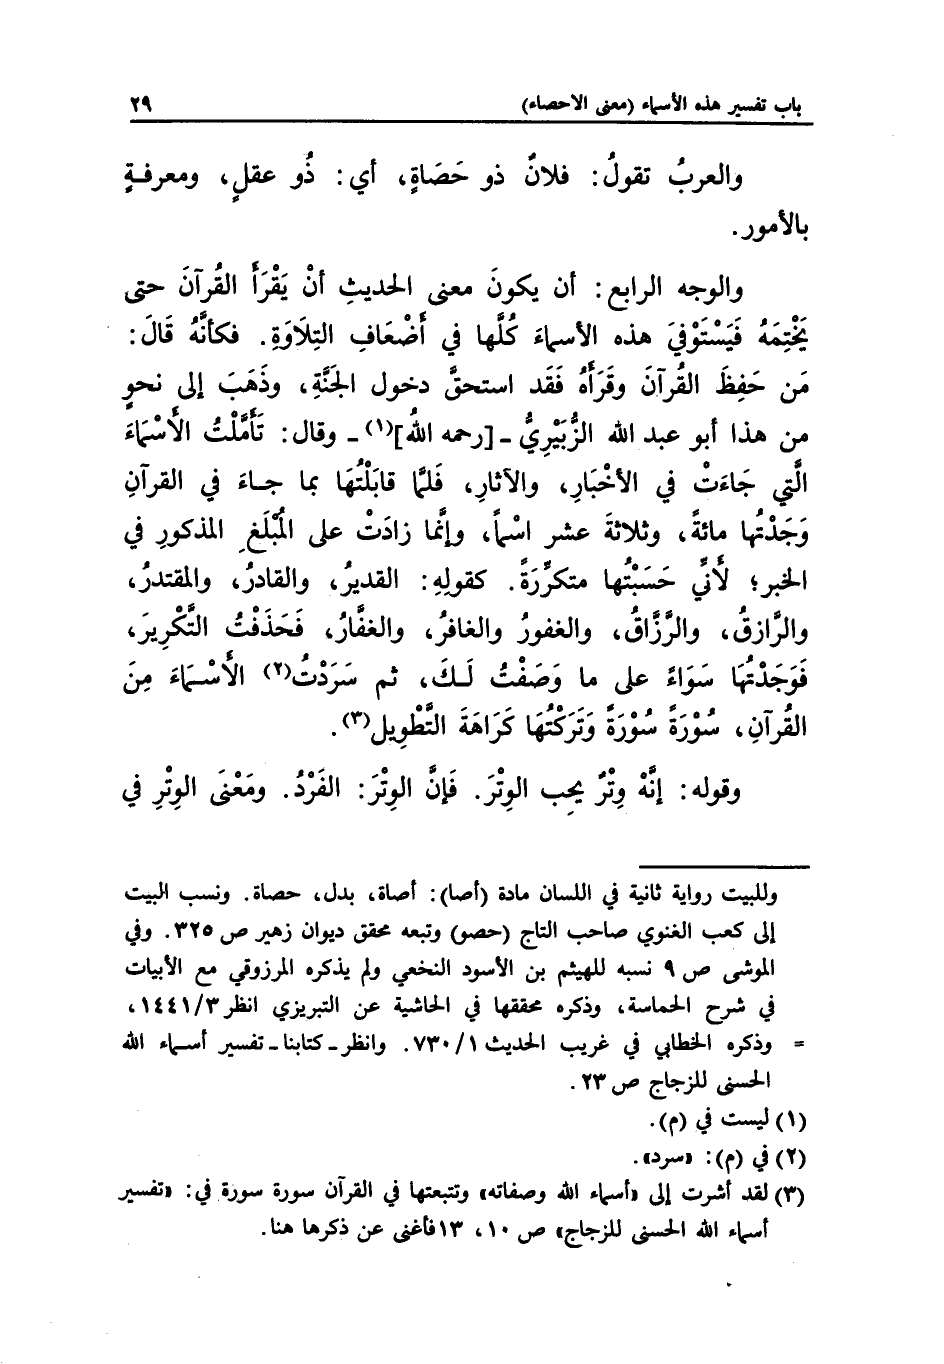 باب تفسير هذه الأسماء (معنى الاحصاء) ٢٩
والعربُ تقولُ: فلانٌ ذو حَصَاةٍ، أي: ذُو عقلٍ، ومعرفةٍ
بالأمور.
والوجه الرابع: أن يكونَ معنى الحديثِ أنْ يَقْرَأَ القُرآنَ حتى
يَخْتِمَهُ فَيَسْتَوْفيَ هذه الأسماءَ كُلَّها في أَضْعَافِ التِلَاوَةِ. فكأنَّهُ قَالَ:
مَن حَفِظَ القُرآنَ وقَرَأَهُ فَقَد استحقَّ دخول الجَنَّةِ، وذَهَبَ إلى نحوٍ
من هذا أبو عبد الله الزُّبَيْرِيُّ ـ [رحمه اللهُ](١) ـ وقال: تَأَمَّلْتُ الأَسْمَاءَ
الَّتي جَاءَتْ في الأخْبَارِ، والآثارِ، فَلمَّا قابَلْتُهَا بما جاءَ في القرآنِ
وَجَدْتُها مائةً، وثلاثةَ عشر اسْماً، وإنَّما زادَتْ على المُبْلَغِ المذكورِ في
الخبر؛ لأنّي حَسَبْتُها متكرِّرَةً. كقولِهِ: القديرُ، والقادرُ، والمقتدرُ،
والرَّازقُ، والرَّزَّاقُ، والغفورُ والغافرُ، والغفَّارُ، فَحَذَفْتُ التَّكْرِيرَ،
فَوَجَدْتُهَا سَوَاءً على ما وَصَفْتُ لَكَ، ثم سَرَدْتُ(٢) الأَسْمَاءَ مِنَ
القُرآنِ، سُوْرَةً سُوْرَةً وَتَرَكْتُهَا كَرَاهَةَ التَّطْوِيل(٣).
وقوله: إنَّهُ وِتْرٌ يحِب الوِتْرَ. فَإنَّ الوِتْرَ: الفَرْدُ. ومَعْنَى الوِتْرِ في
وللبيت رواية ثانية في اللسان مادة (أصا): أصاة، بدل، حصاة. ونسب البيت
إلى كعب الغنوي صاحب التاج (حصو) وتبعه محقق ديوان زهير ص ٣٢٥. وفي
الموشى ص ٩ نسبه للهيثم بن الأسود النخعي ولم يذكره المرزوقي مع الأبيات
في شرح الحماسة، وذكره محققها في الحاشية عن التبريزي انظر ١٤٤١/٣،
= وذكره الخطابي في غريب الحديث ٧٣٠/١. وانظر ـ كتابنا ـ تفسير أسماء الله
الحسنى للزجاج ص ٢٣.
(١) ليست في (م).
(٢) في (م): «سرد».
(٣) لقد أشرت إلى «أسماء الله وصفاته» وتتبعتها في القرآن سورة سورة في: «تفسير
أسماء الله الحسنى للزجاج» ص ١٠، ١٣ فأغنى عن ذكرها هنا.